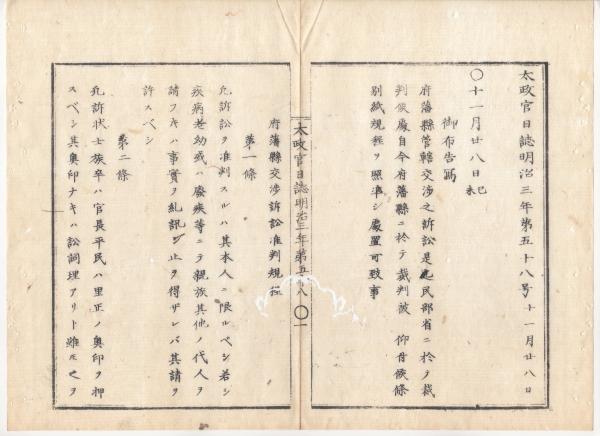 太政官日誌明治三年第五十八号 十一月廿八日
〇十一月廿八日 己未
御布告寫
府藩縣管轄交渉之訴訟是迄民部省ニ於テ裁
判候處自今府藩縣ニ於テ裁判被 仰付候條
別紙規程ヲ照準シ處置可致事
太政官日誌明治三年第五十八 〇一
府藩縣交渉訴訟准判規程
第一條
凡訴訟ヲ准判スルハ其本人ニ限ルベシ若シ
疾病老幼或ハ廢疾等ニテ親族其他ノ代人ヲ
請フキハ事實ヲ糺訊シ止ヲ得ザレバ其請ヲ
許スベシ
第二條
凡訴状士族卒ハ官長平民ハ里正ノ奥印ヲ押
スベシ其奥印ナキハ訟詞理アリト雖モ之ヲ